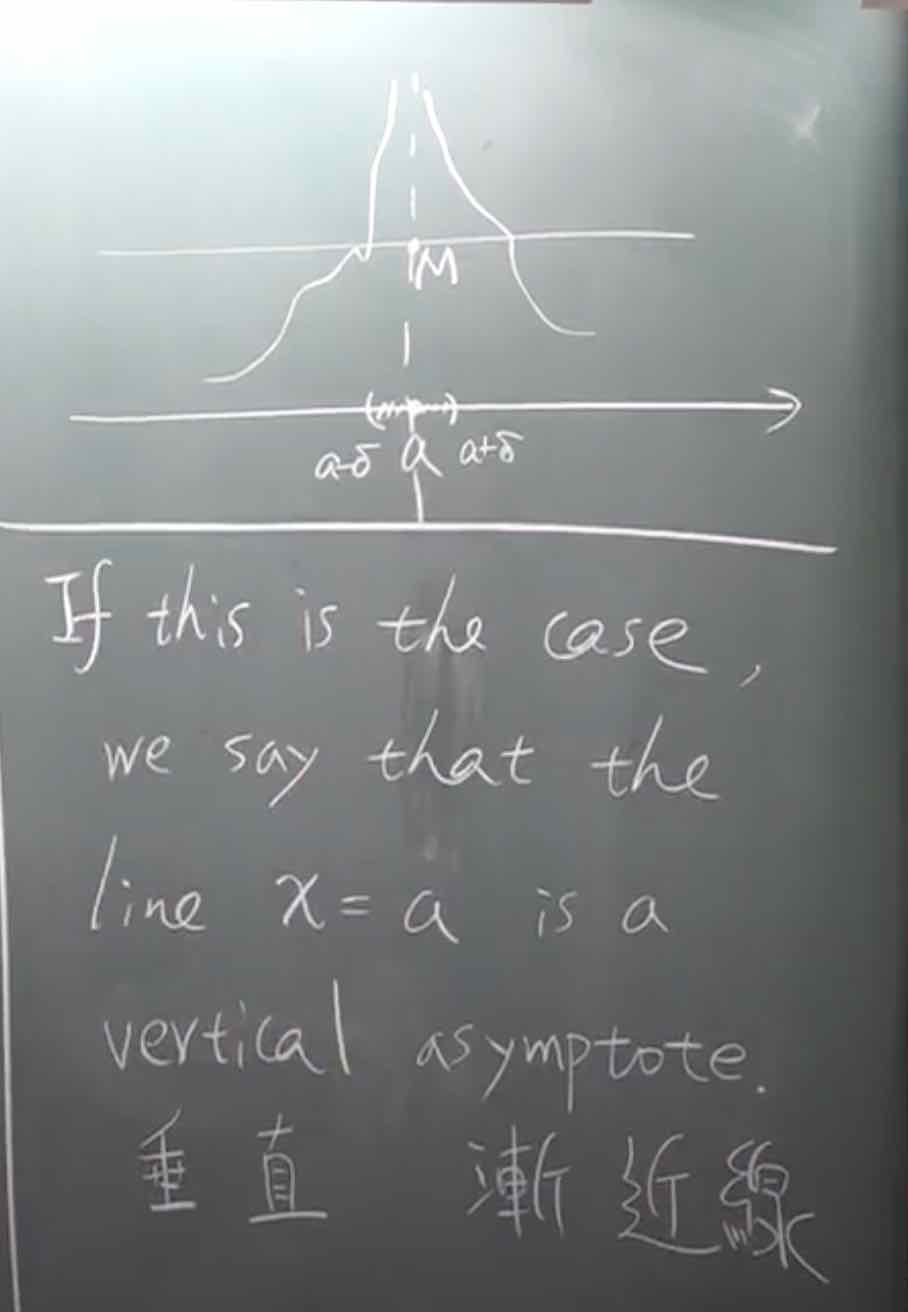 M
a-δ a a+δ
If this is the case,
we say that the
line x = a is a
vertical asymptote.
垂直 漸近線